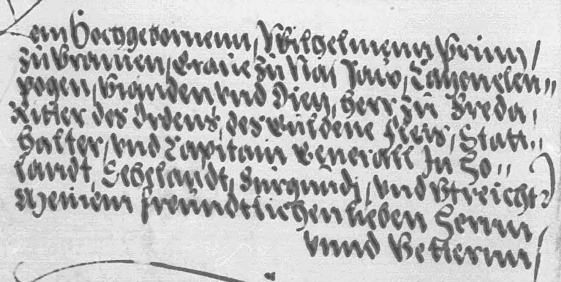 em Hochgebornenn, Wilhelmenn Prinn/
zu Uranien, Graue zu Nas sauw, Catzenelen=
pogen, Vianden vnd Dietz, Herr zu Breda,
Ritter des Ordens, des Guldene Flois, Statt=
halter, vnd Capitain Generall In Ho=
landt, Sehelandt, Burgundj, vnd Vtreicht
Meinem freundtlichen lieben Herrnn
vnnd Vetternn/